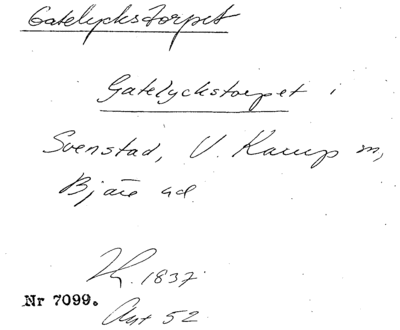 Gatelyckstorpet
Gatelyckstorpet i
Svenstad, V. Karup sn,
Bjäre hd.
1837.
Nr 7099.
Akt 52